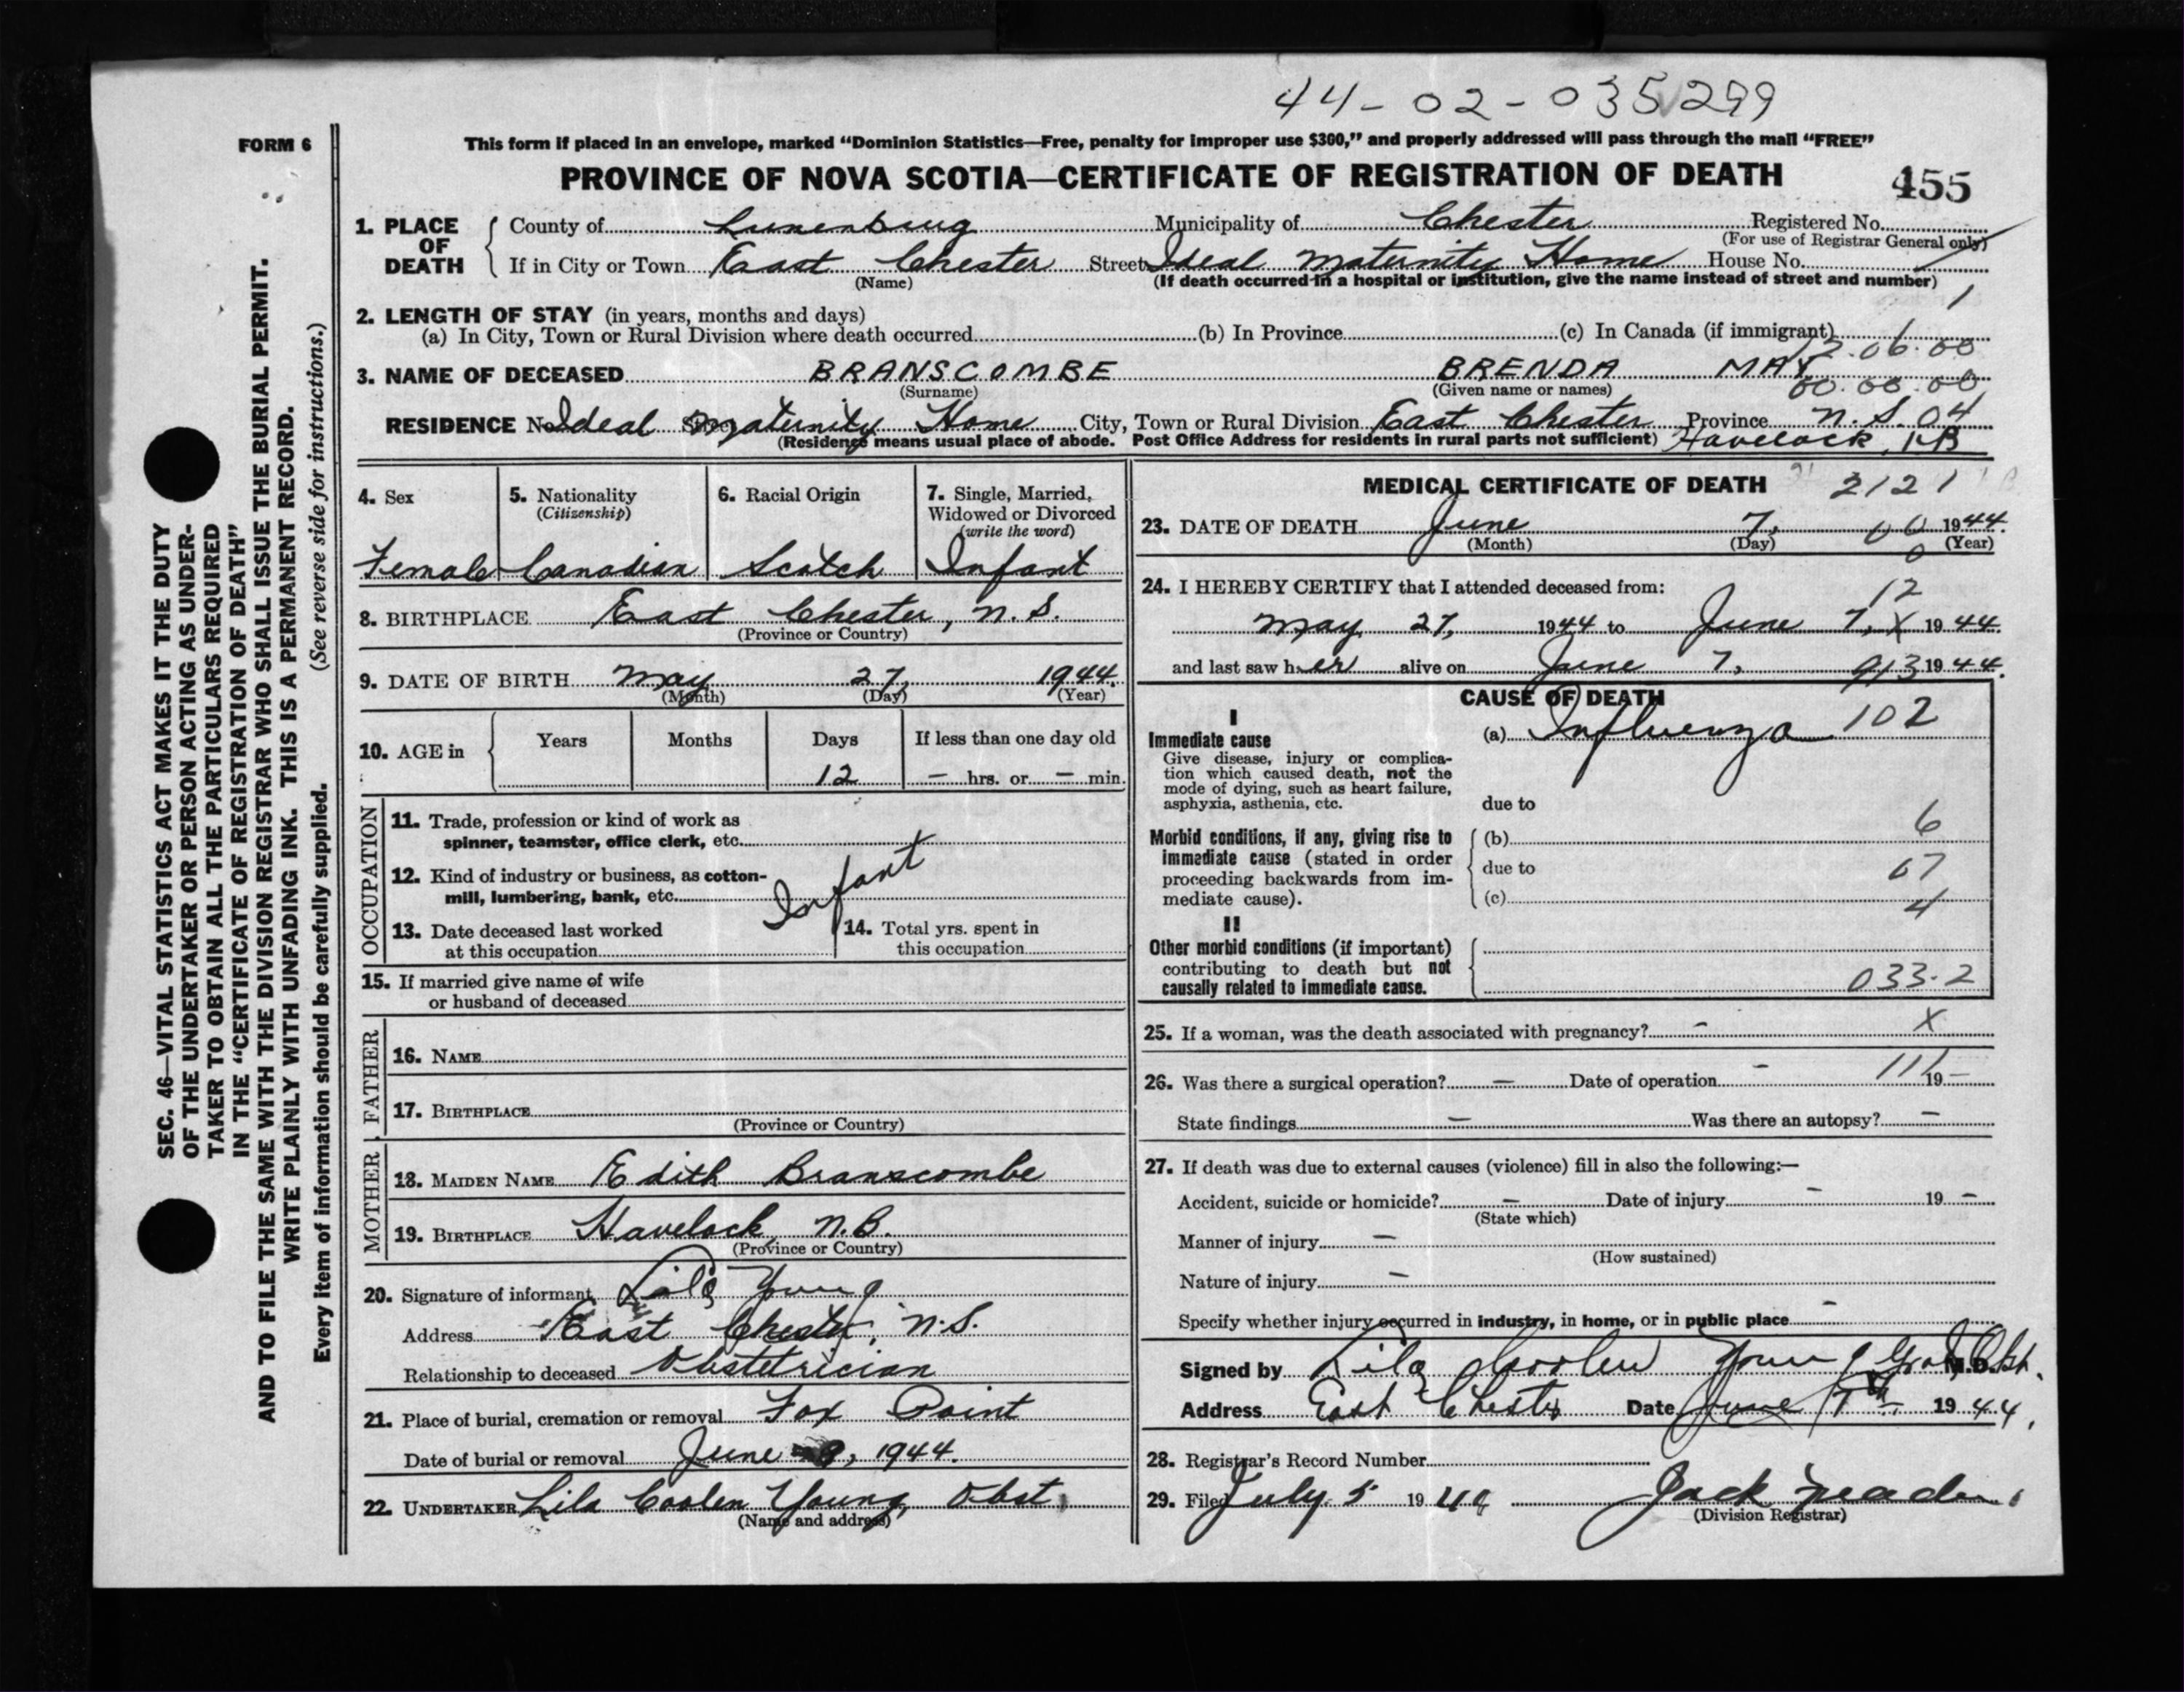 44-02-035299
FORM 6
This form if placed in an envelope, marked “Dominion Statistics—Free, penalty for improper use $300,” and properly addressed will pass through the mail “FREE”
PROVINCE OF NOVA SCOTIA—CERTIFICATE OF REGISTRATION OF DEATH
455
1. PLACE OF DEATH
County of Lunenburg Municipality of Chester Registered No.
(For use of Registrar General only)
If in City or Town East Chester Street Ideal Maternity Home House No.
(Name) (If death occurred in a hospital or institution, give the name instead of street and number)
1
2. LENGTH OF STAY (in years, months and days)
(a) In City, Town or Rural Division where death occurred (b) In Province (c) In Canada (if immigrant)
12.06.00
3. NAME OF DECEASED BRANSCOMBE BRENDA MAY
(Surname) (Given name or names) 00.00.00
RESIDENCE No. Ideal Maternity Home City, Town or Rural Division East Chester Province N.S. 04
(Residence means usual place of abode. Post Office Address for residents in rural parts not sufficient) Havelock, NB
4. Sex
Female
5. Nationality
(Citizenship)
Canadian
6. Racial Origin
Scotch
7. Single, Married,
Widowed or Divorced
(write the word)
Infant
8. BIRTHPLACE East Chester, N.S.
(Province or Country)
9. DATE OF BIRTH May 27, 1944.
(Month) (Day) (Year)
10. AGE in Years Months Days If less than one day old
12 – hrs. or – min.
OCCUPATION
11. Trade, profession or kind of work as
spinner, teamster, office clerk, etc.
12. Kind of industry or business, as cotton-
mill, lumbering, bank, etc.
Infant
13. Date deceased last worked
at this occupation
14. Total yrs. spent in
this occupation
15. If married give name of wife
or husband of deceased
FATHER
16. NAME
17. BIRTHPLACE
(Province or Country)
MOTHER
18. MAIDEN NAME Edith Branscombe
19. BIRTHPLACE Havelock N.B.
(Province or Country)
20. Signature of informant Lila Young
Address East Chester, N.S.
Relationship to deceased Obstetrician
21. Place of burial, cremation or removal Fox Point
Date of burial or removal June 8, 1944.
22. UNDERTAKER Lila Coolen Young, Obst.
(Name and address)
MEDICAL CERTIFICATE OF DEATH 2121
23. DATE OF DEATH June 7, 00 1944.
(Month) (Day) (Year)
0
24. I HEREBY CERTIFY that I attended deceased from:
12
May 27, 1944 to June 7, X 1944.
and last saw her alive on June 7, 913 1944.
CAUSE OF DEATH
I
Immediate cause
Give disease, injury or complica-
tion which caused death, not the
mode of dying, such as heart failure,
asphyxia, asthenia, etc.
(a) Influenza 102
due to
Morbid conditions, if any, giving rise to
immediate cause (stated in order
proceeding backwards from im-
mediate cause).
6
(b)
due to 67
(c)
4
II
Other morbid conditions (if important)
contributing to death but not
causally related to immediate cause.
033.2
25. If a woman, was the death associated with pregnancy? – X
26. Was there a surgical operation? – Date of operation – 19 –
State findings – Was there an autopsy? –
27. If death was due to external causes (violence) fill in also the following:—
Accident, suicide or homicide? – Date of injury – 19 –
(State which)
Manner of injury –
(How sustained)
Nature of injury –
Specify whether injury occurred in industry, in home, or in public place –
Signed by Lila Coolen Young Grad. Obst. M.D.
Address East Chester Date June 7th 1944.
28. Registrar's Record Number
29. Filed July 5 1944
(Division Registrar)
SEC. 46—VITAL STATISTICS ACT MAKES IT THE DUTY
OF THE UNDERTAKER OR PERSON ACTING AS UNDER-
TAKER TO OBTAIN ALL THE PARTICULARS REQUIRED
IN THE “CERTIFICATE OF REGISTRATION OF DEATH”
AND TO FILE THE SAME WITH THE DIVISION REGISTRAR WHO SHALL ISSUE THE BURIAL PERMIT.
WRITE PLAINLY WITH UNFADING INK. THIS IS A PERMANENT RECORD.
Every item of information should be carefully supplied. (See reverse side for instructions.)